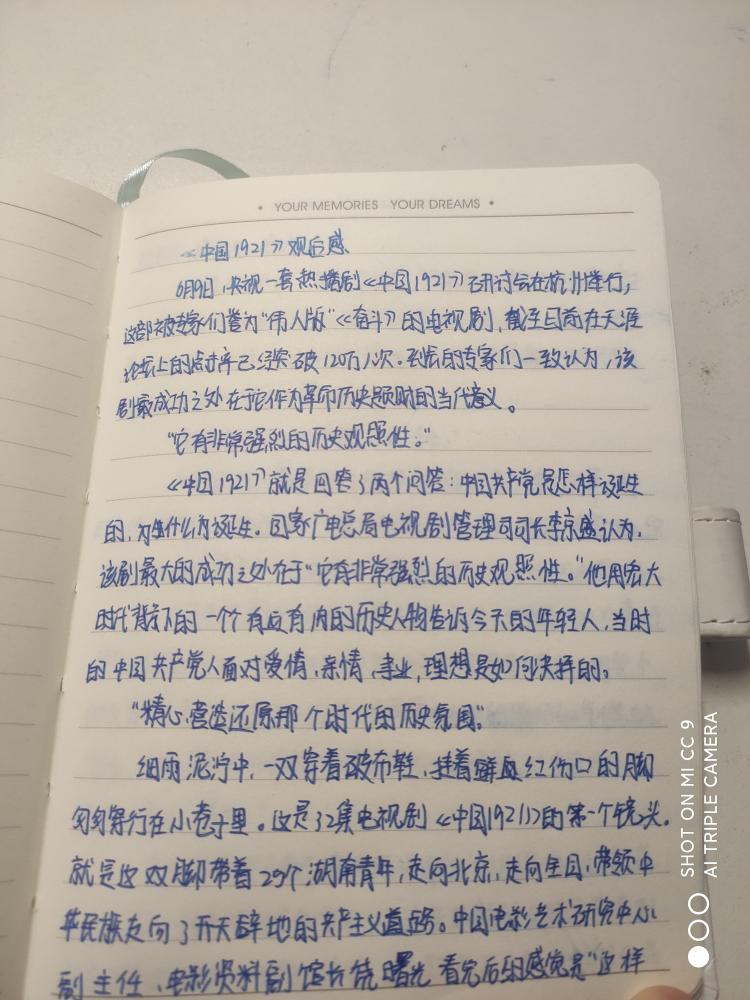 • YOUR MEMORIES YOUR DREAMS •
《中国1921》观后感
6月9日,央视一套热播剧《中国1921》研讨会在杭州举行,
这部被专家们誉为"伟人版"《奋斗》的电视剧,截至目前在天涯
论坛上的点击率已经突破120万人次.到会的专家们一致认为,该
剧最成功之处在于它作为革命历史题材的当代意义。
"它有非常强烈的历史观照性。"
《中国1921》就是回答了两个问答:中国共产党是怎样诞生
的,为什么为诞生.国家广电总局电视剧管理司司长李京盛认为,
该剧最大的成功之处在于"它有非常强烈的历史观照性。"他用宏大
时代背景下的一个个有血有肉的历史人物告诉今天的年轻人,当时
的中国共产党人面对爱情、亲情、事业,理想是如何抉择的。
"精心营造还原那个时代的历史氛围"
细雨泥泞中,一双穿着破布鞋,挂着鲜血红伤口的脚
匆匆穿行在小巷子里。这是32集电视剧《中国1921》的第一个镜头.
就是这双脚带着29个湖南青年,走向北京,走向全国,带领中
华民族走向了开天辟地的共产主义道路。中国电影艺术研究中心
副主任、电影资料副馆长饶曙光看完后的感觉是"这样
SHOT ON MI CC 9
AI TRIPLE CAMERA